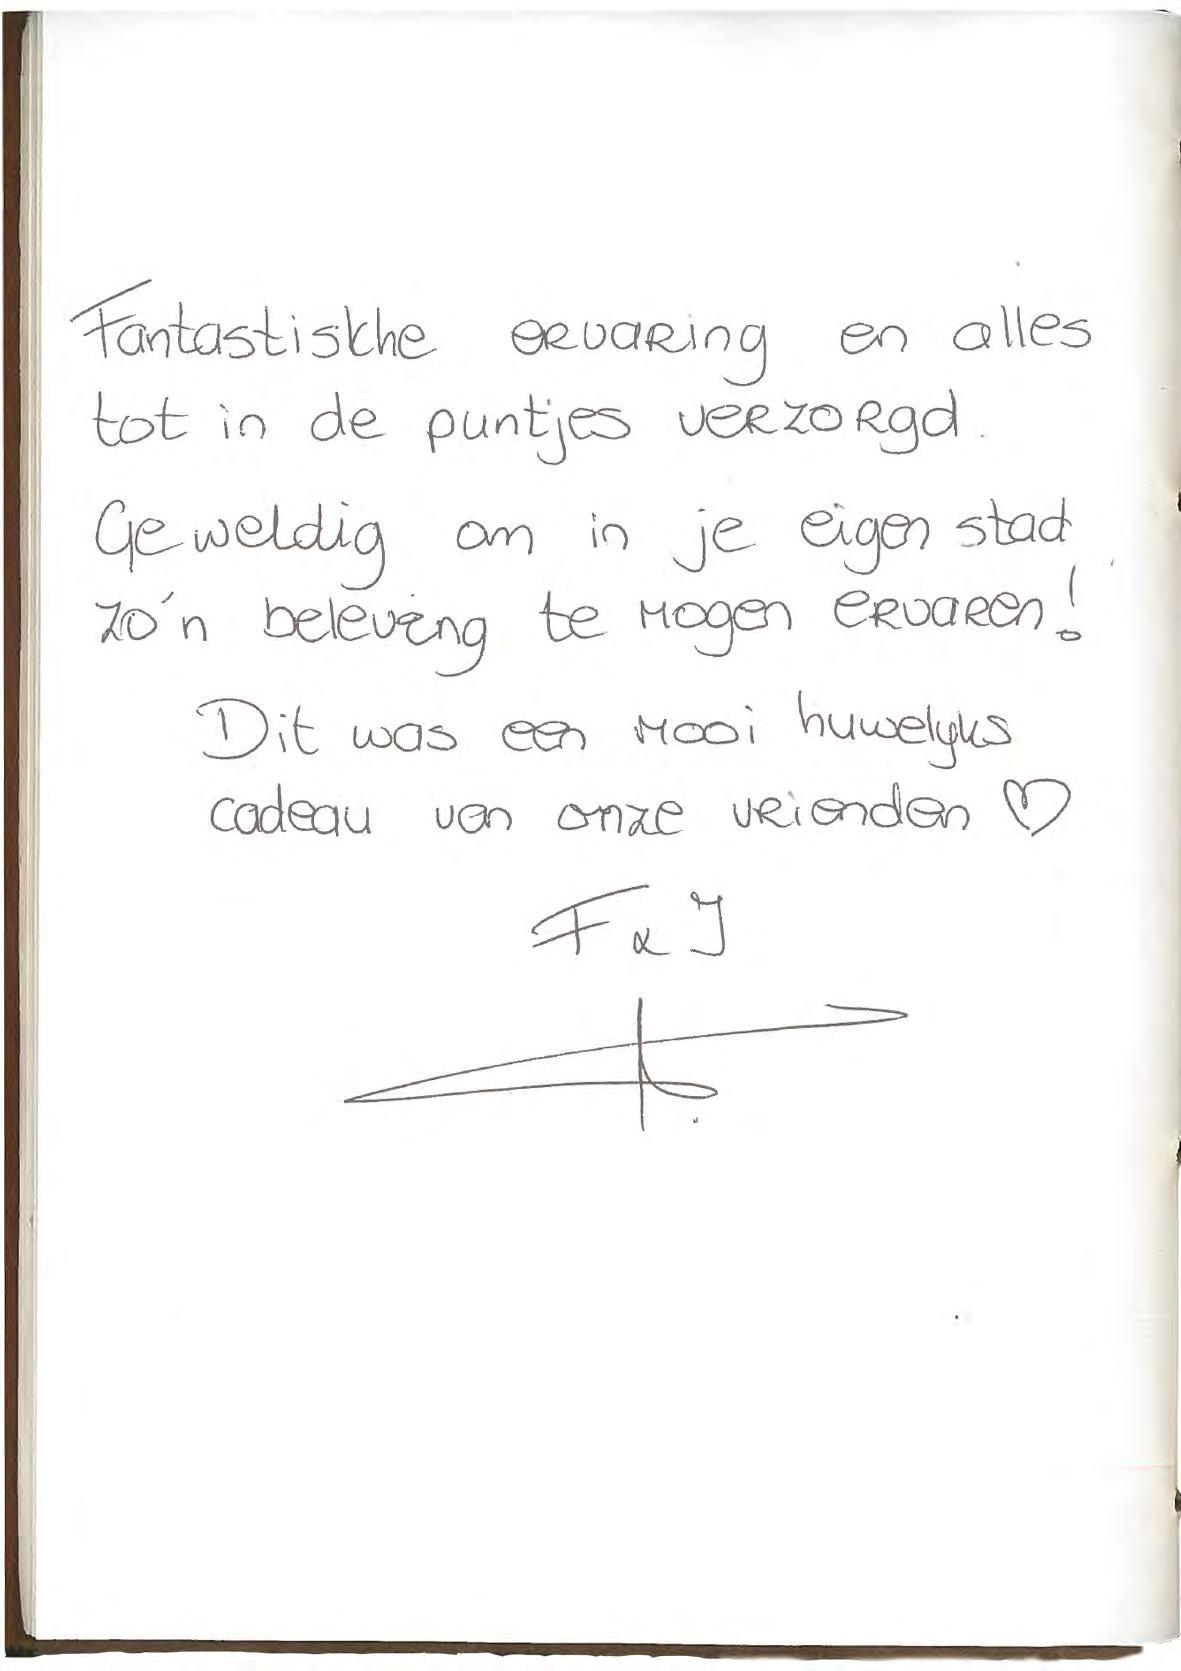 Fantastiskhe ervaring en alles
tot in de puntjes verzorgd.
Geweldig om in je eigen stad
zo'n beleving te mogen ervaren!
Dit was een mooi huwelyks
cadeau van onze vrienden ♡
F & J